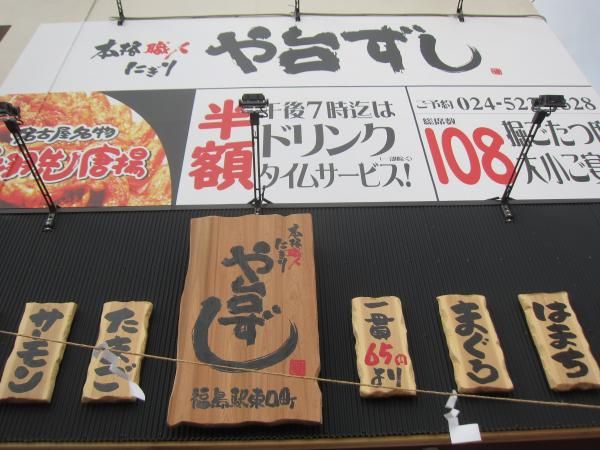 本格職人
にぎり
や台ずし
名古屋名物
手羽先ノ唐揚
半額
午後7時迄は
ドリンク
(一部除く)
タイムサービス!
ご予約
総席数
108
掘ごたつ
大小ご宴
本格職人
にぎり
や台ずし
福島駅東口町
サーモン
たまご
一貫
65円
より
まぐろ
はまち